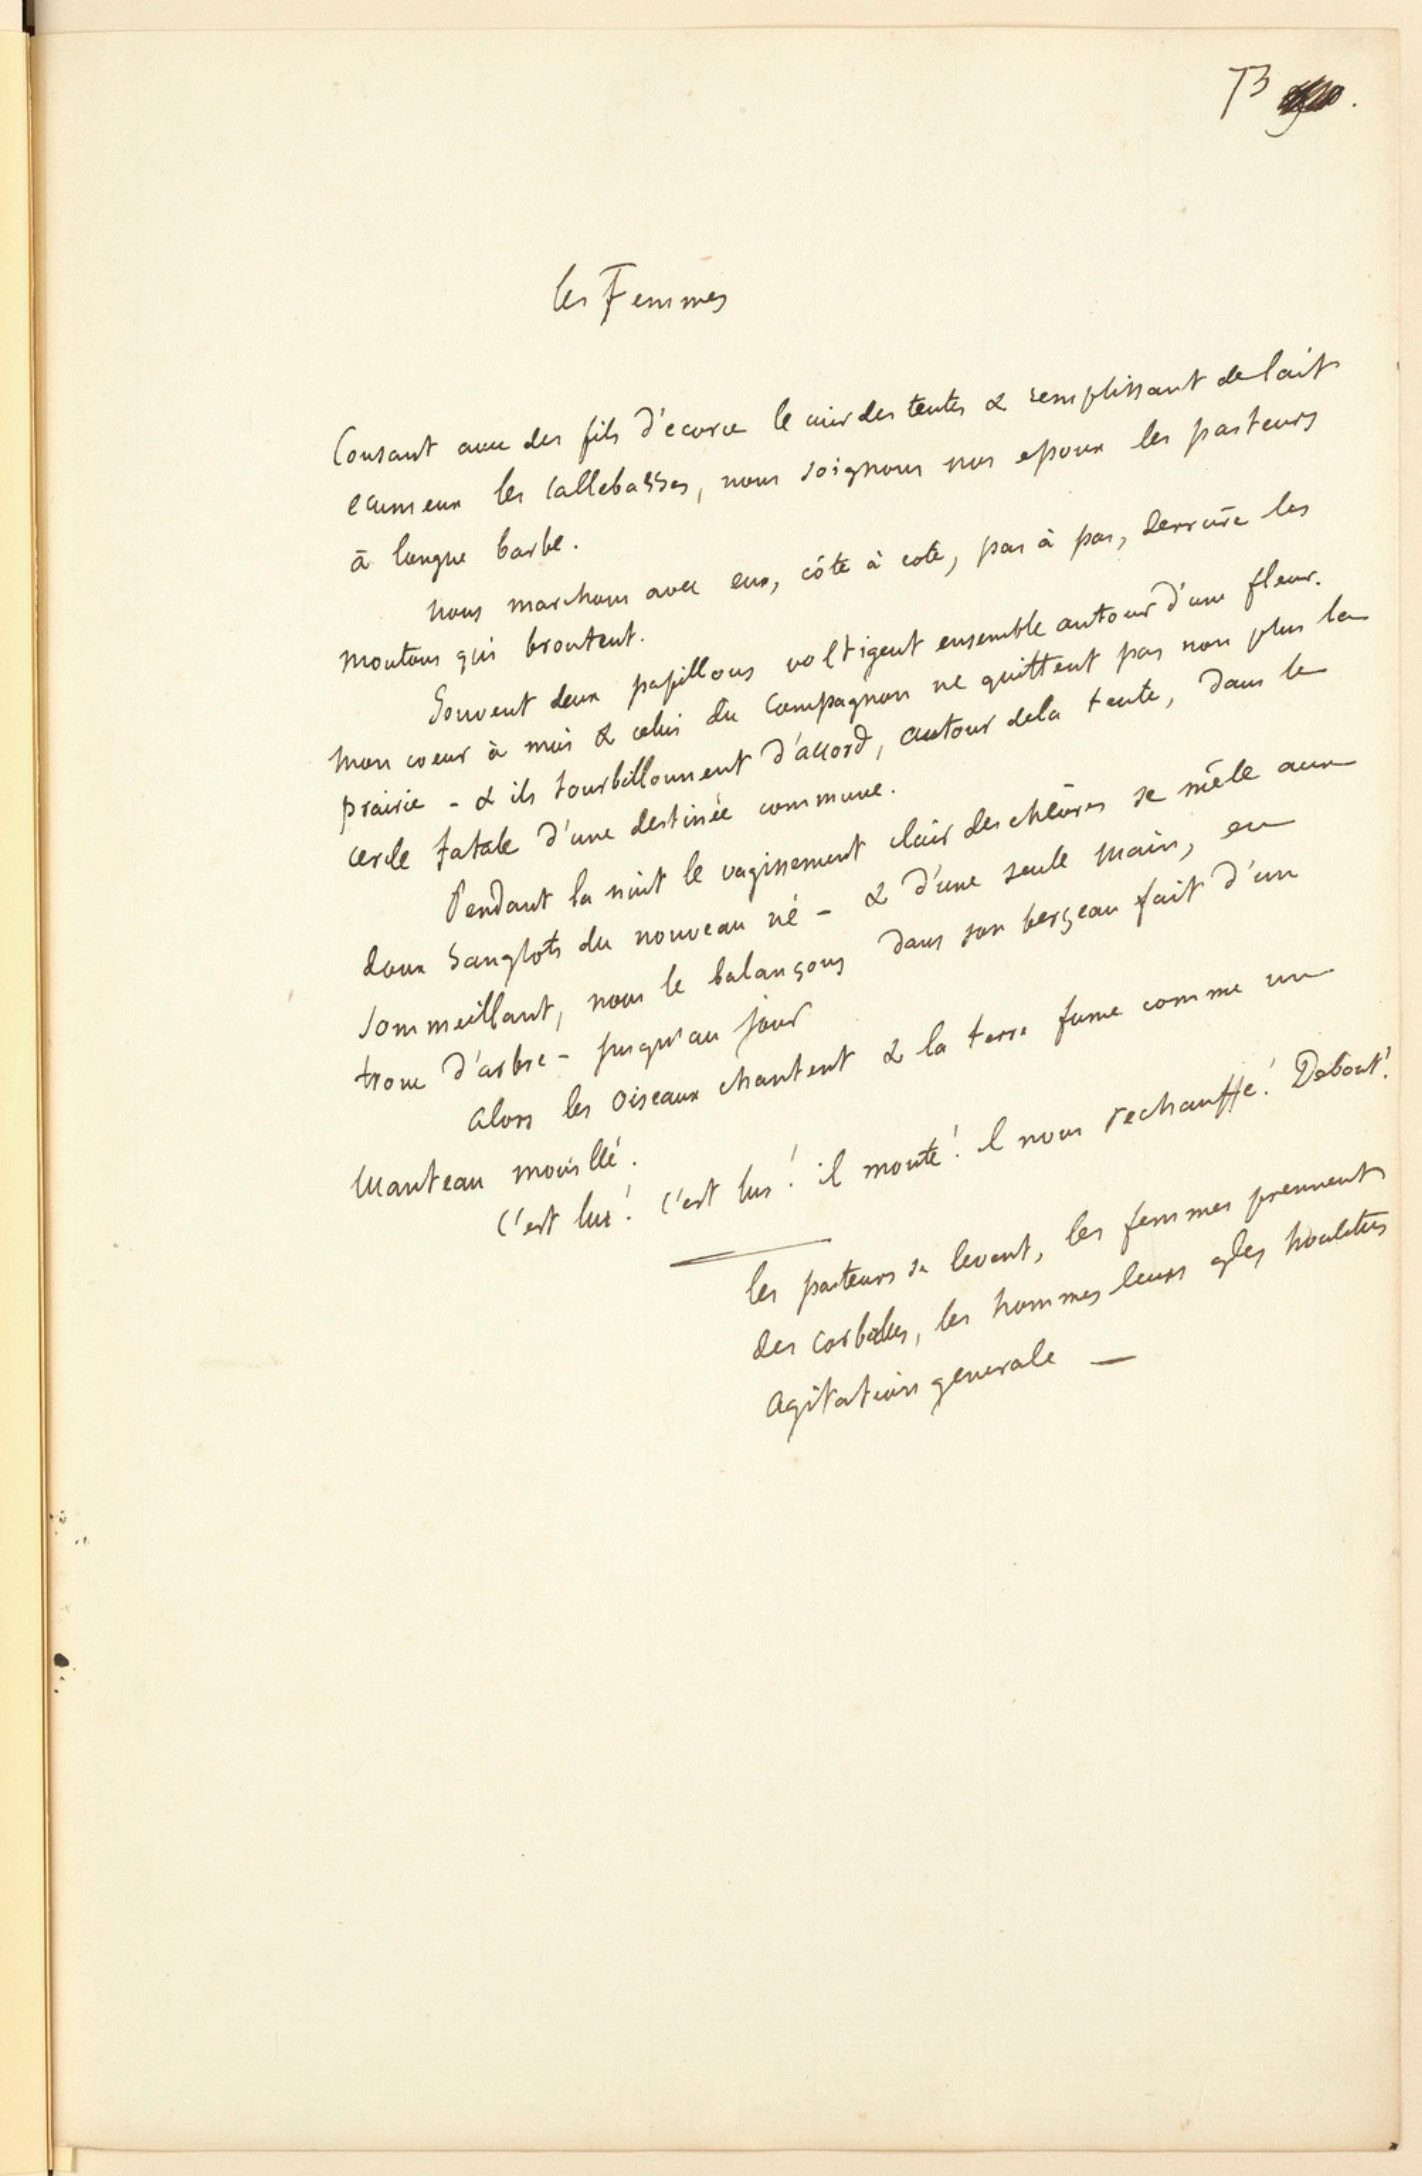 73
les Femmes
Cousant avec des fils d'ecorce le cuir des tentes & remplissant de lait
ecumeux les callebasses, nous soignons nos epoux les pasteurs
à longue barbe.
nous marchons avec eux, côte à cote, pas à pas, derrière les
moutons qui broutent.
Souvent deux papillons voltigent ensemble autour d'une fleur.
mon coeur à moi & celui du compagnon ne quittent pas non plus la
prairie - & ils tourbillonnent d'accord, autour de la tente, dans le
cercle fatale d'une destinée commune.
Pendant la nuit le vagissement clair des chèvres se mêle aux
doux sanglots du nouveau né - & d'une seule main, en
sommeillant, nous le balançons dans son berçeau fait d'un
tronc d'arbre - jusqu'au jour
alors les oiseaux chantent & la terre fume comme un
manteau mouillé.
C'est lui! c'est lui! il monte! il nous rechauffe! Debout!
les pasteurs se levent, les femmes prennent
des corbeilles, les hommes leurs houlettes
agitation generale —